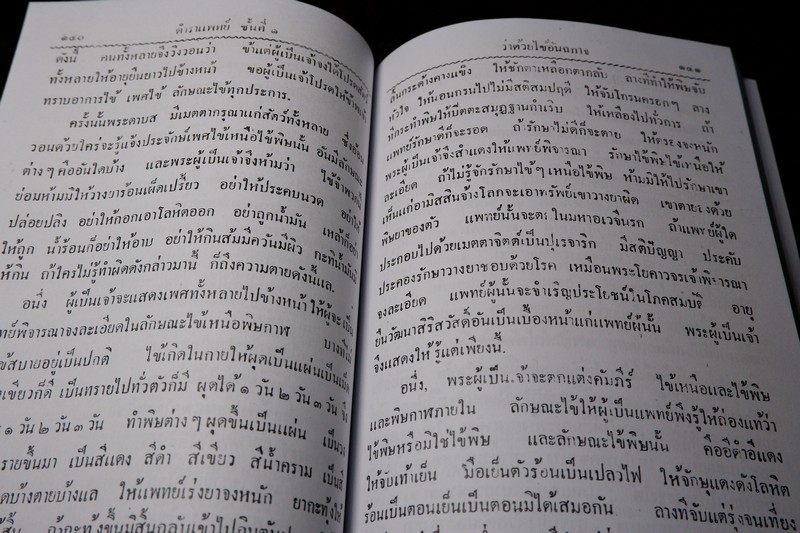 ๑๔๐ ตำราแพทย์ ชั้นที่ ๑
ดังนี้ คนทั้งหลายจึงวิงวอนว่า ข้าแต่ผู้เป็นเจ้าจงได้โปรดสัตว์
ทั้งหลายให้อายุยืนยาวไปข้างหน้า ขอผู้เป็นเจ้าโปรดให้ข้าพเจ้า
ทราบอาการไข้ เพศไข้ ลักษณะไข้ทุกประการ.
ครั้งนั้นพระดาบส มีเมตตากรุณาแก่สัตว์ทั้งหลาย ซึ่งอ้อน
วอนด้วยใคร่จะรู้แจ้งประจักษ์เพศไข้เหนือไข้พิษนั้น อันมีลักษณะ
ต่างๆ คืออันใดบ้าง และพระผู้เป็นเจ้าจึงห้ามว่า ไข้จำพวกนี้
ย่อมห้ามมิให้วางยาร้อนเผ็ดเปรี้ยว อย่าให้ประคบนวด อย่าให้
ปล่อยปลิง อย่าให้กอกเอาโลหิตออก อย่าถูกน้ำมัน เหล้าก็อย่า
ให้ถูก น้ำร้อนก็อย่าให้อาบ อย่าให้กินส้มมีควันมีผิว กะทิน้ำมันมิ
ให้กิน ถ้าใครไม่รู้ทำผิดดังกล่าวมานี้ ก็ถึงความตายดังนี้แล.
อนึ่ง ผู้เป็นเจ้าจะแสดงเพศทั้งหลายไปข้างหน้า ให้ผู้จะเป็น
พิจารณาจงละเอียดในลักษณะไข้เหนือพิษกาฬ บางทีไม่
สบายอยู่เป็นปกติ ไข้เกิดในกายให้ผุดเป็นแผ่นเป็นเม็ด
เขียวก็ดี เป็นทรายไปทั่วตัวก็มี ผุดได้ ๑ วัน ๒ วัน ๓ วัน จึง
๑ วัน ๒ วัน ๓ วัน ทำพิษต่างๆ ผุดขึ้นเป็นแผ่น เป็นวง
ขึ้นมา เป็นสีแดง สีดำ สีเขียว สีน้ำคราม เป็นสี
บ้างตายบ้างแล ให้แพทย์เร่งยาจงหนัก ยากะทุ้งให้
ถ้ากะทุ้งขึ้นมิสิ้นกลับเข้าไป
ว่าด้วยไข้อันฉกาจ ๑๔๑
ลิ้นกระด้างคางแข็ง ให้ชักตาเหลือกตากลับ ลางทีทำให้พิษจับ
หัวใจ ให้นอนกรนไปไม่มีสติสมปฤดี ให้จับโกรนครอกๆ ลาง
ทีกระทำพิษให้ปิตตะสมุฏฐานกำเริบ ให้เหลืองไปทั่วกาย ถ้า
แพทย์รักษาดีก็จะรอด ถ้ารักษาไม่ดีก็จะตาย ให้ตรองจงหนัก
พระผู้เป็นเจ้าจึงสำแดงให้แพทย์พิจารณา รักษาไข้พิษไข้เหนือให้
ละเอียด ถ้าไม่รู้จักรักษาไข้ๆ เหนือไข้พิษ ห้ามมิให้ไปรักษาเขา
เห็นแก่อามิสสินจ้างโลภจะเอาทรัพย์เขาวางยาผิด เขาตายลงด้วย
พิษยาของตัว แพทย์นั้นจะตกในมหาอเวจีนรก ถ้าแพทย์ผู้ใด
ประกอบไปด้วยเมตตาจิตต์เป็นปุเรจาริก มีสติปัญญา ประคับ
ประคองรักษาวางยาชอบด้วยโรค เหมือนพระโยคาวจรเจ้าพิจารณา
จงละเอียด แพทย์ผู้นั้นจะจำเริญประโยชน์ในโภคสมบัติ อายุ
ยืนวัฒนาสิริสวัสดิ์อันเป็นเบื้องหน้าแก่แพทย์ผู้นั้น พระผู้เป็นเจ้า
จึงแสดงให้รู้แต่เพียงนี้.
อนึ่ง, พระผู้เป็นเจ้าจะตกแต่งคัมภีร์ ไข้เหนือและไข้พิษ
และพิษกาฬภายใน ลักษณะไข้ให้ผู้เป็นแพทย์พึงรู้ให้ถ่องแท้ว่า
ไข้พิษหรือมิใช่ไข้พิษ และลักษณะไข้พิษนั้น คืออีดำอีแดง
ให้จับเท้าเย็น มือเย็นตัวร้อนเป็นเปลวไฟ ให้จักษุแดงดังโลหิต
ร้อนเป็นตอนเย็นเป็นตอนมิได้เสมอกัน ลางทีจับแต่รุ่งจนเที่ยง